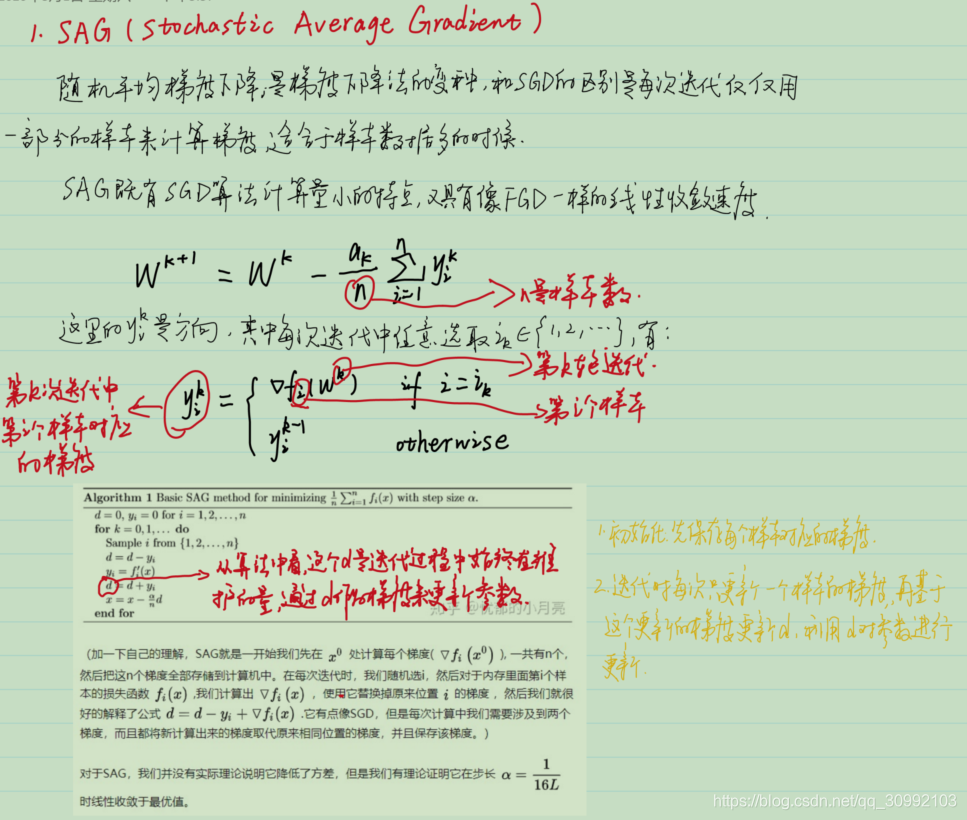 1. SAG (Stochastic Average Gradient)
随机平均梯度下降,是梯度下降法的变种,和SGD的区别是每次迭代仅仅用
一部分的样本来计算梯度,适合于样本数据多的时候.
SAG既有SGD算法计算量小的特点,又具有像FGD一样的线性收敛速度.
W^{k+1} = W^k - \frac{a_k}{n} \sum_{i=1}^{n} y_i^k
n是样本数.
这里的y_i^k是方向,其中每次迭代中任意选取i_k∈{1,2,⋯},有:
第k轮迭代.
第k次迭代中
第i个样本对应
的梯度
y_i^k = { ∇f_i(W^k) if i=i_k
第i个样本
y_i^{k-1} otherwise
Algorithm 1 Basic SAG method for minimizing \frac{1}{n} \sum_{i=1}^{n} f_i(x) with step size α.
d = 0, y_i = 0 for i = 1, 2, . . . , n
for k = 0, 1, . . . do
Sample i from {1, 2, . . . , n}
d = d − y_i
y_i = f_i'(x)
d = d + y_i
x = x − \frac{α}{n} d
end for
从算法中看,这个d是迭代过程中始终在维
护的量,通过d的梯度来更新参数.
知乎 @忧郁的小月亮
1.初始化:先保存每个样本对应的梯度.
2.迭代时每次只更新一个样本的梯度,再基于
这个更新的梯度更新d,利用d对参数进行
更新.
(加一下自己的理解,SAG就是一开始我们先在 x^0 处计算每个梯度( ∇f_i (x^0) ),一共有n个,
然后把这n个梯度全部存储到计算机中。在每次迭代时,我们随机选i,然后对于内存里面第i个样
本的损失函数 f_i(x) ,我们计算出 ∇f_i (x) ,使用它替换掉原来位置 i 的梯度,然后我们就很
好的解释了公式 d = d − y_i + ∇f_i(x) .它有点像SGD,但是每次计算中我们需要涉及到两个
梯度,而且都将新计算出来的梯度取代原来相同位置的梯度,并且保存该梯度。)
对于SAG,我们并没有实际理论说明它降低了方差,但是我们有理论证明它在步长 α = \frac{1}{16L}
时线性收敛于最优值。
https://blog.csdn.net/qq_30992103